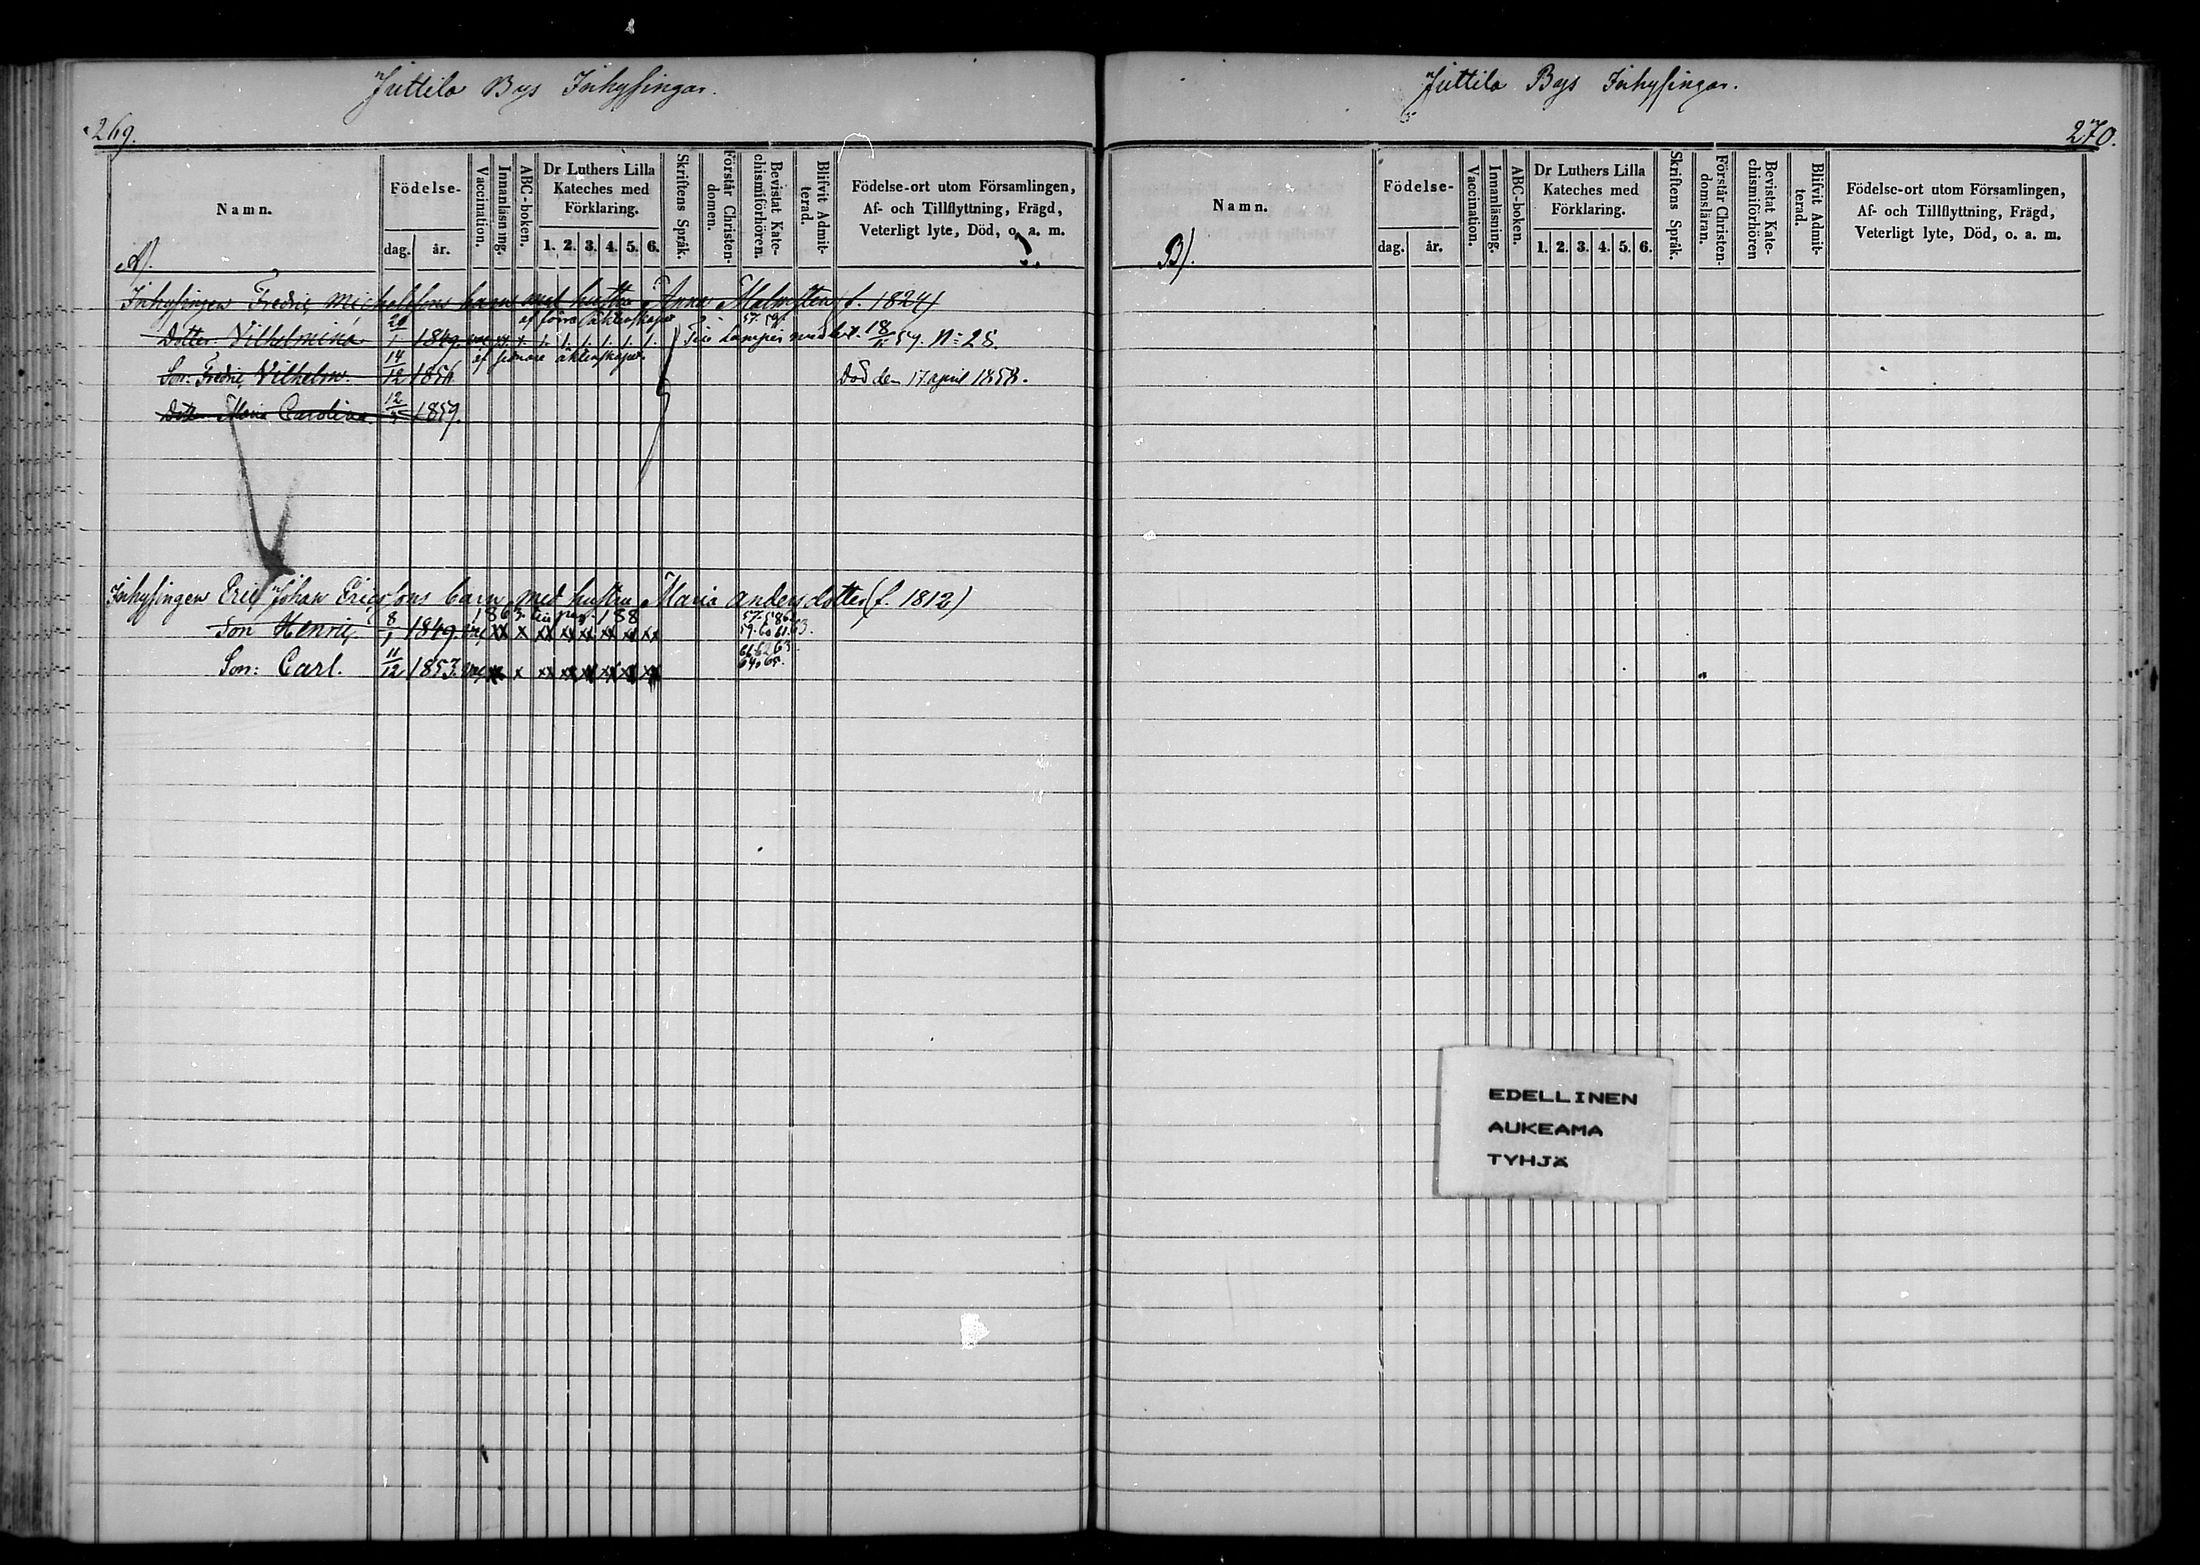 Juttila Bys Inhysingar.
269.
Namn.
Födelse-
dag. år.
Vaccination.
Innanläsning.
ABC-boken.
Dr Luthers Lilla
Kateches med
Förklaring.
1. 2. 3. 4. 5. 6.
Skriftens Språk.
Förstår Christen-
domen.
Bevistat Kate-
chismiförhören.
Blifvit Admit-
terad.
Födelse-ort utom Församlingen,
Af- och Tillflyttning, Frägd,
Veterligt lyte, Död, o. a. m.
A).
Inhysingen Fredric Michelssons barn med hustru Anna Malmsten (f. 1824)
af förra äktenskapet 57. 59.
Dotter Vilhelmina 20/1 1849. vac x x 1. 1. 1. 1. 1. 1. Till med bet. 18/11 59. N:25.
af senare äktenskapet
Son: Fredric Vilhelm. 14/12 1856 Död den 17 april 1858.
Dotter Maria Carolina. 12/5 1859.
Inhysingen Eric Johan Ericssons barn med hustru Maria Andersdotter (f. 1812)
1863 till pag. 188 57. 58 6
Son Henric 8/1 1849. vac xx x xx xx xx xx xx xx 59. 60 61. 63.
61. 62 63.
Son: Carl. 11/12 1853. vac x x xx xx xx xx xx xx 64. 65.
Juttila Bys Inhysingar.
270.
Namn.
Födelse-
dag. år.
Vaccination.
Innanläsning.
ABC-boken.
Dr Luthers Lilla
Kateches med
Förklaring.
1. 2. 3. 4. 5. 6.
Skriftens Språk.
Förstår Christen-
domsläran.
Bevistat Kate-
chismiförhören
Blifvit Admit-
terad.
Födelse-ort utom Församlingen,
Af- och Tillflyttning, Frägd,
Veterligt lyte, Död, o. a. m.
B).
EDELLINEN
AUKEAMA
TYHJÄ